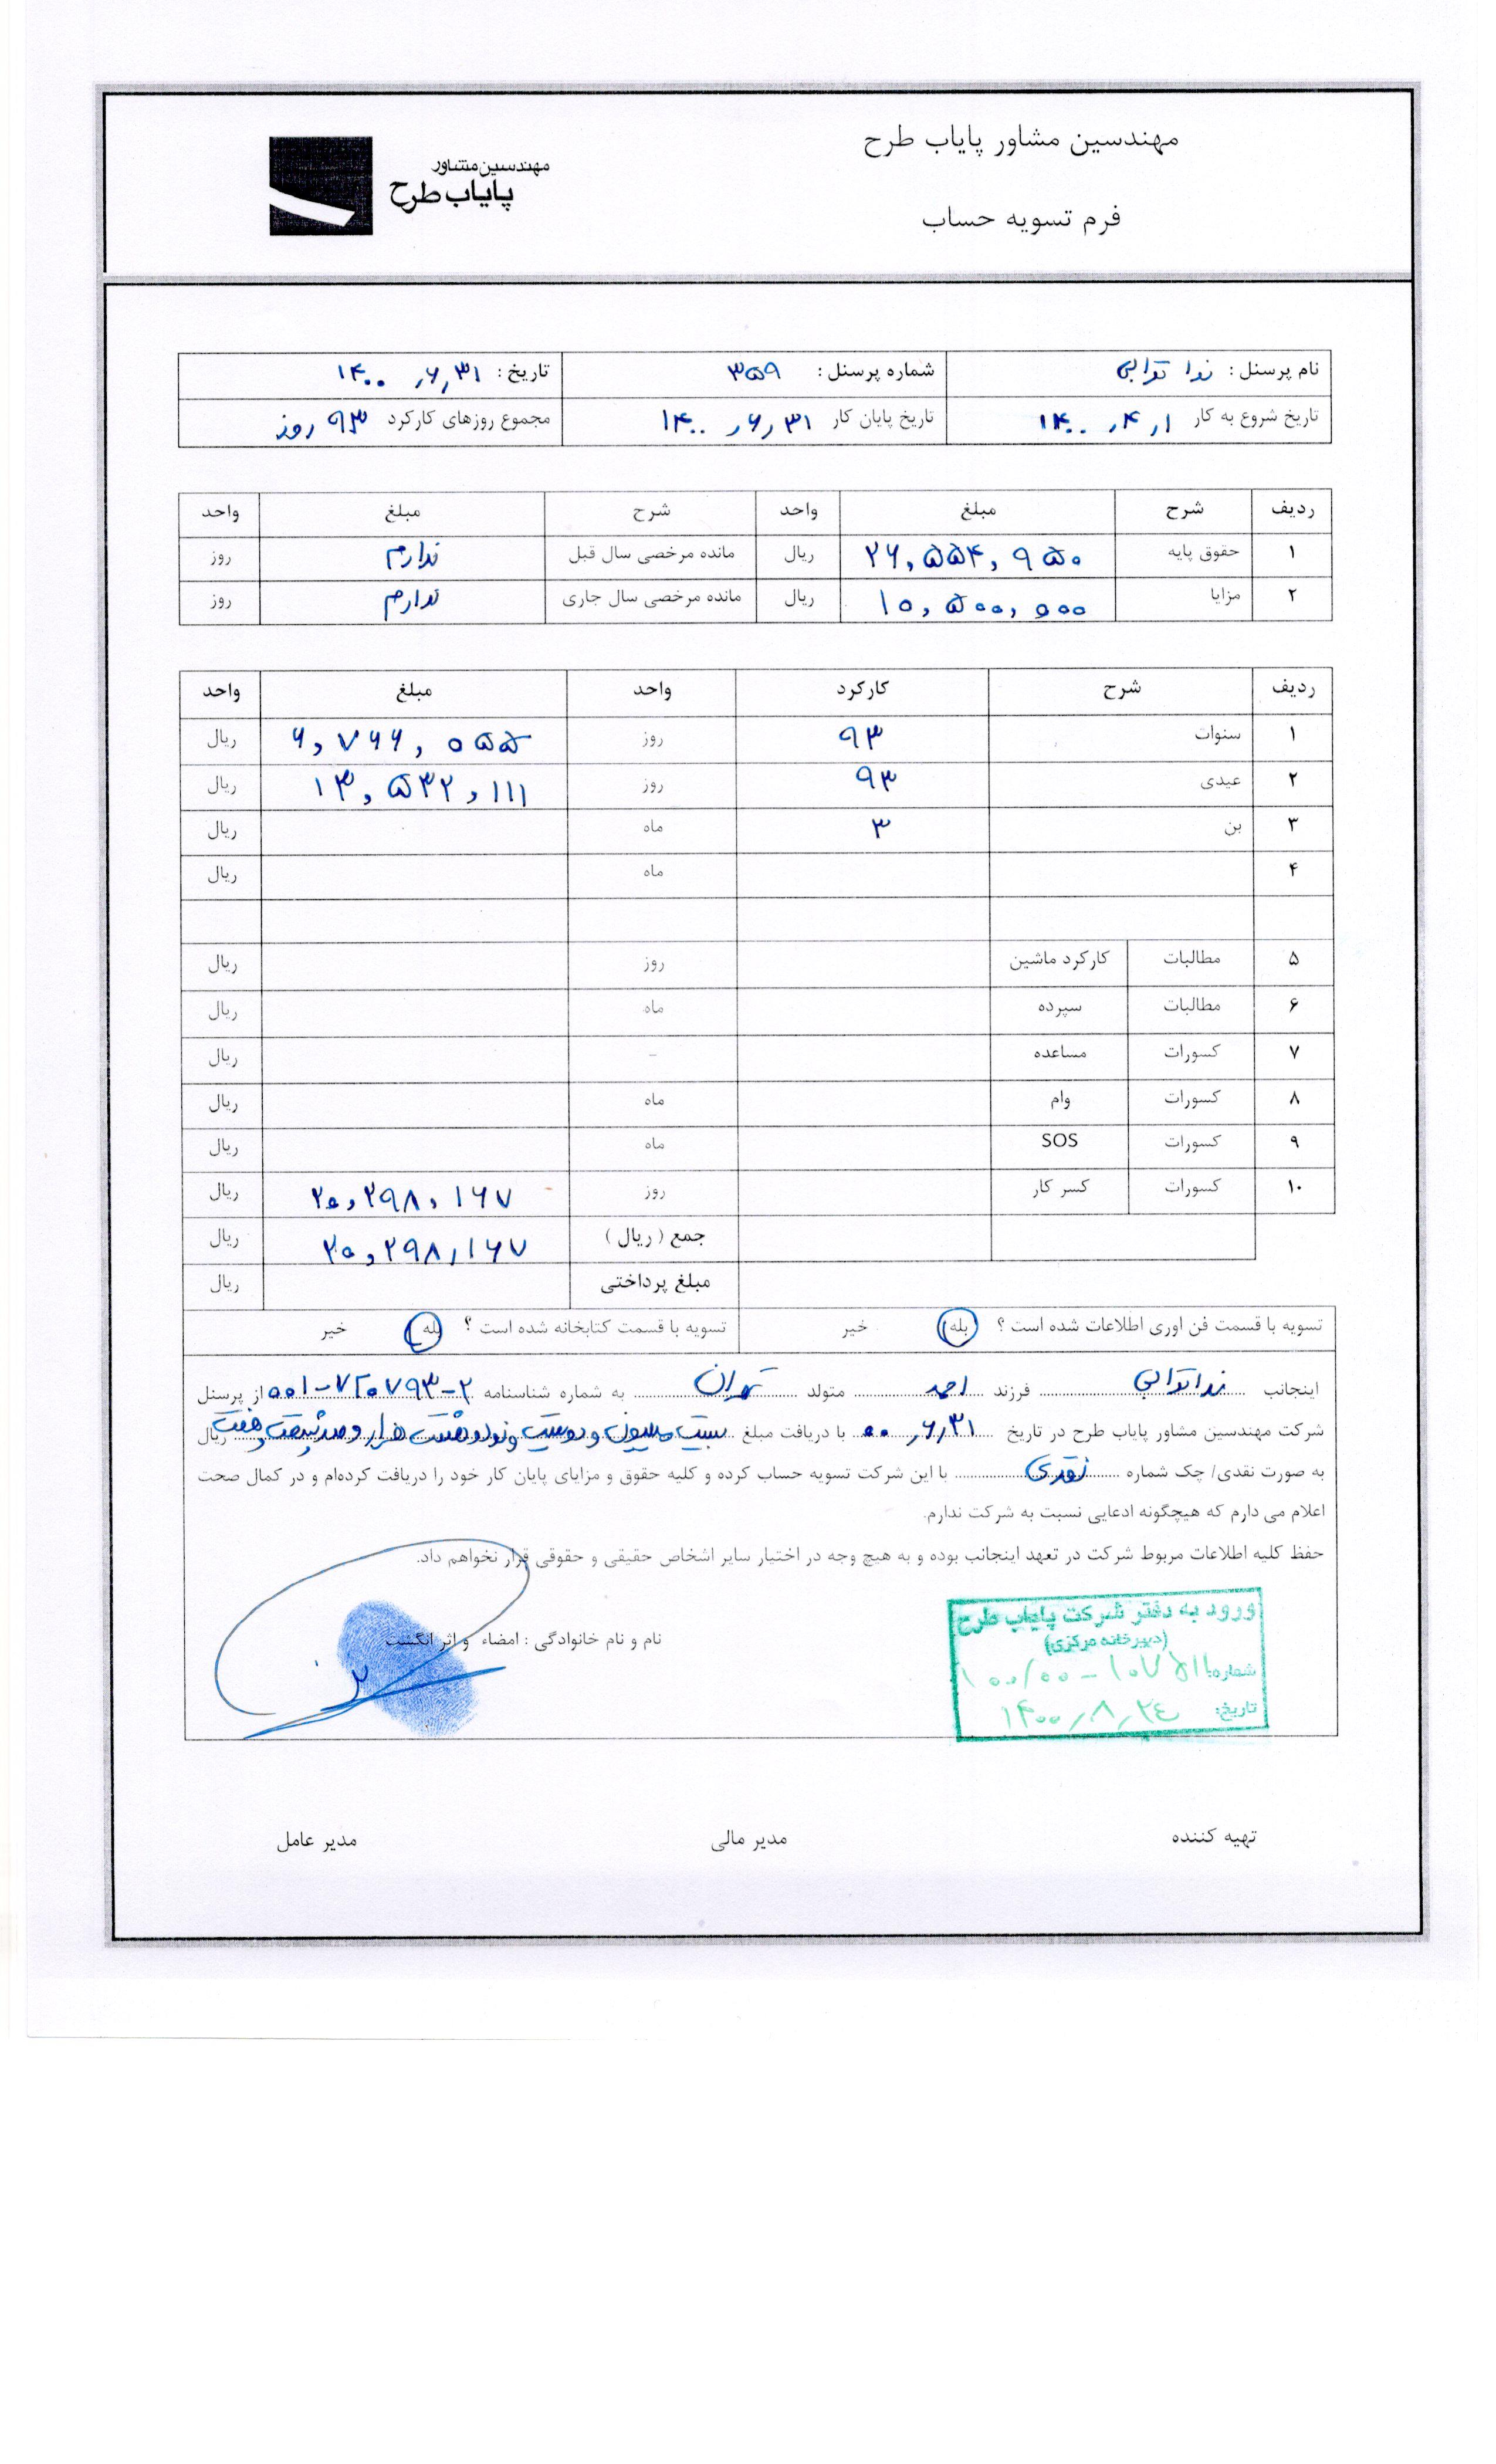 مهندسین مشاور پایاب طرح
مهندسین مشاور
پایاب طرح
فرم تسویه حساب
نام پرسنل : ندا توابی شماره پرسنل : ۳۵۹ تاریخ : ۱۴۰۰,۶,۳۱
تاریخ شروع به کار ۱۴۰۰,۴,۱ تاریخ پایان کار ۱۴۰۰,۶,۳۱ مجموع روزهای کارکرد ۹۳ روز
ردیف شرح مبلغ واحد شرح مبلغ واحد
۱ حقوق پایه ۲۶,۵۵۴,۹۵۰ ریال مانده مرخصی سال قبل ندارم روز
۲ مزایا ۱۰,۵۰۰,۰۰۰ ریال مانده مرخصی سال جاری ندارم روز
ردیف شرح کارکرد واحد مبلغ واحد
۱ سنوات ۹۳ روز ۶,۷۶۶,۰۵۵ ریال
۲ عیدی ۹۳ روز ۱۳,۵۳۲,۱۱۱ ریال
۳ بن ۳ ماه ریال
۴ ماه ریال
۵ مطالبات کارکرد ماشین روز ریال
۶ مطالبات سپرده ماه ریال
۷ کسورات مساعده - ریال
۸ کسورات وام ماه ریال
۹ کسورات SOS ماه ریال
۱۰ کسورات کسر کار روز ۲۰,۲۹۸,۱۶۷ ریال
جمع ( ریال ) ۲۰,۲۹۸,۱۶۷ ریال
مبلغ پرداختی ریال
تسویه با قسمت فن اوری اطلاعات شده است ؟ بله خیر تسویه با قسمت کتابخانه شده است ؟ بله خیر
اینجانب ندا توابی فرزند احمد متولد تهران به شماره شناسنامه ۰۰۱-۷۲۰۷۹۳-۲ از پرسنل
شرکت مهندسین مشاور پایاب طرح در تاریخ ۰۰,۶,۳۱ با دریافت مبلغ بیست میلیون و دویست و نود و هشت هزار و صد و شصت و هفت ریال
به صورت نقدی/ چک شماره نقدی با این شرکت تسویه حساب کرده و کلیه حقوق و مزایای پایان کار خود را دریافت کرده‌ام و در کمال صحت
اعلام می دارم که هیچگونه ادعایی نسبت به شرکت ندارم.
حفظ کلیه اطلاعات مربوط شرکت در تعهد اینجانب بوده و به هیچ وجه در اختیار سایر اشخاص حقیقی و حقوقی قرار نخواهم داد.
ورود به دفتر شرکت پایاب طرح
(دبیرخانه مرکزی)
نام و نام خانوادگی : امضاء و اثر انگشت
شماره:
تاریخ: ۱۴۰۰,۸,۲٤
تهیه کننده مدیر مالی مدیر عامل